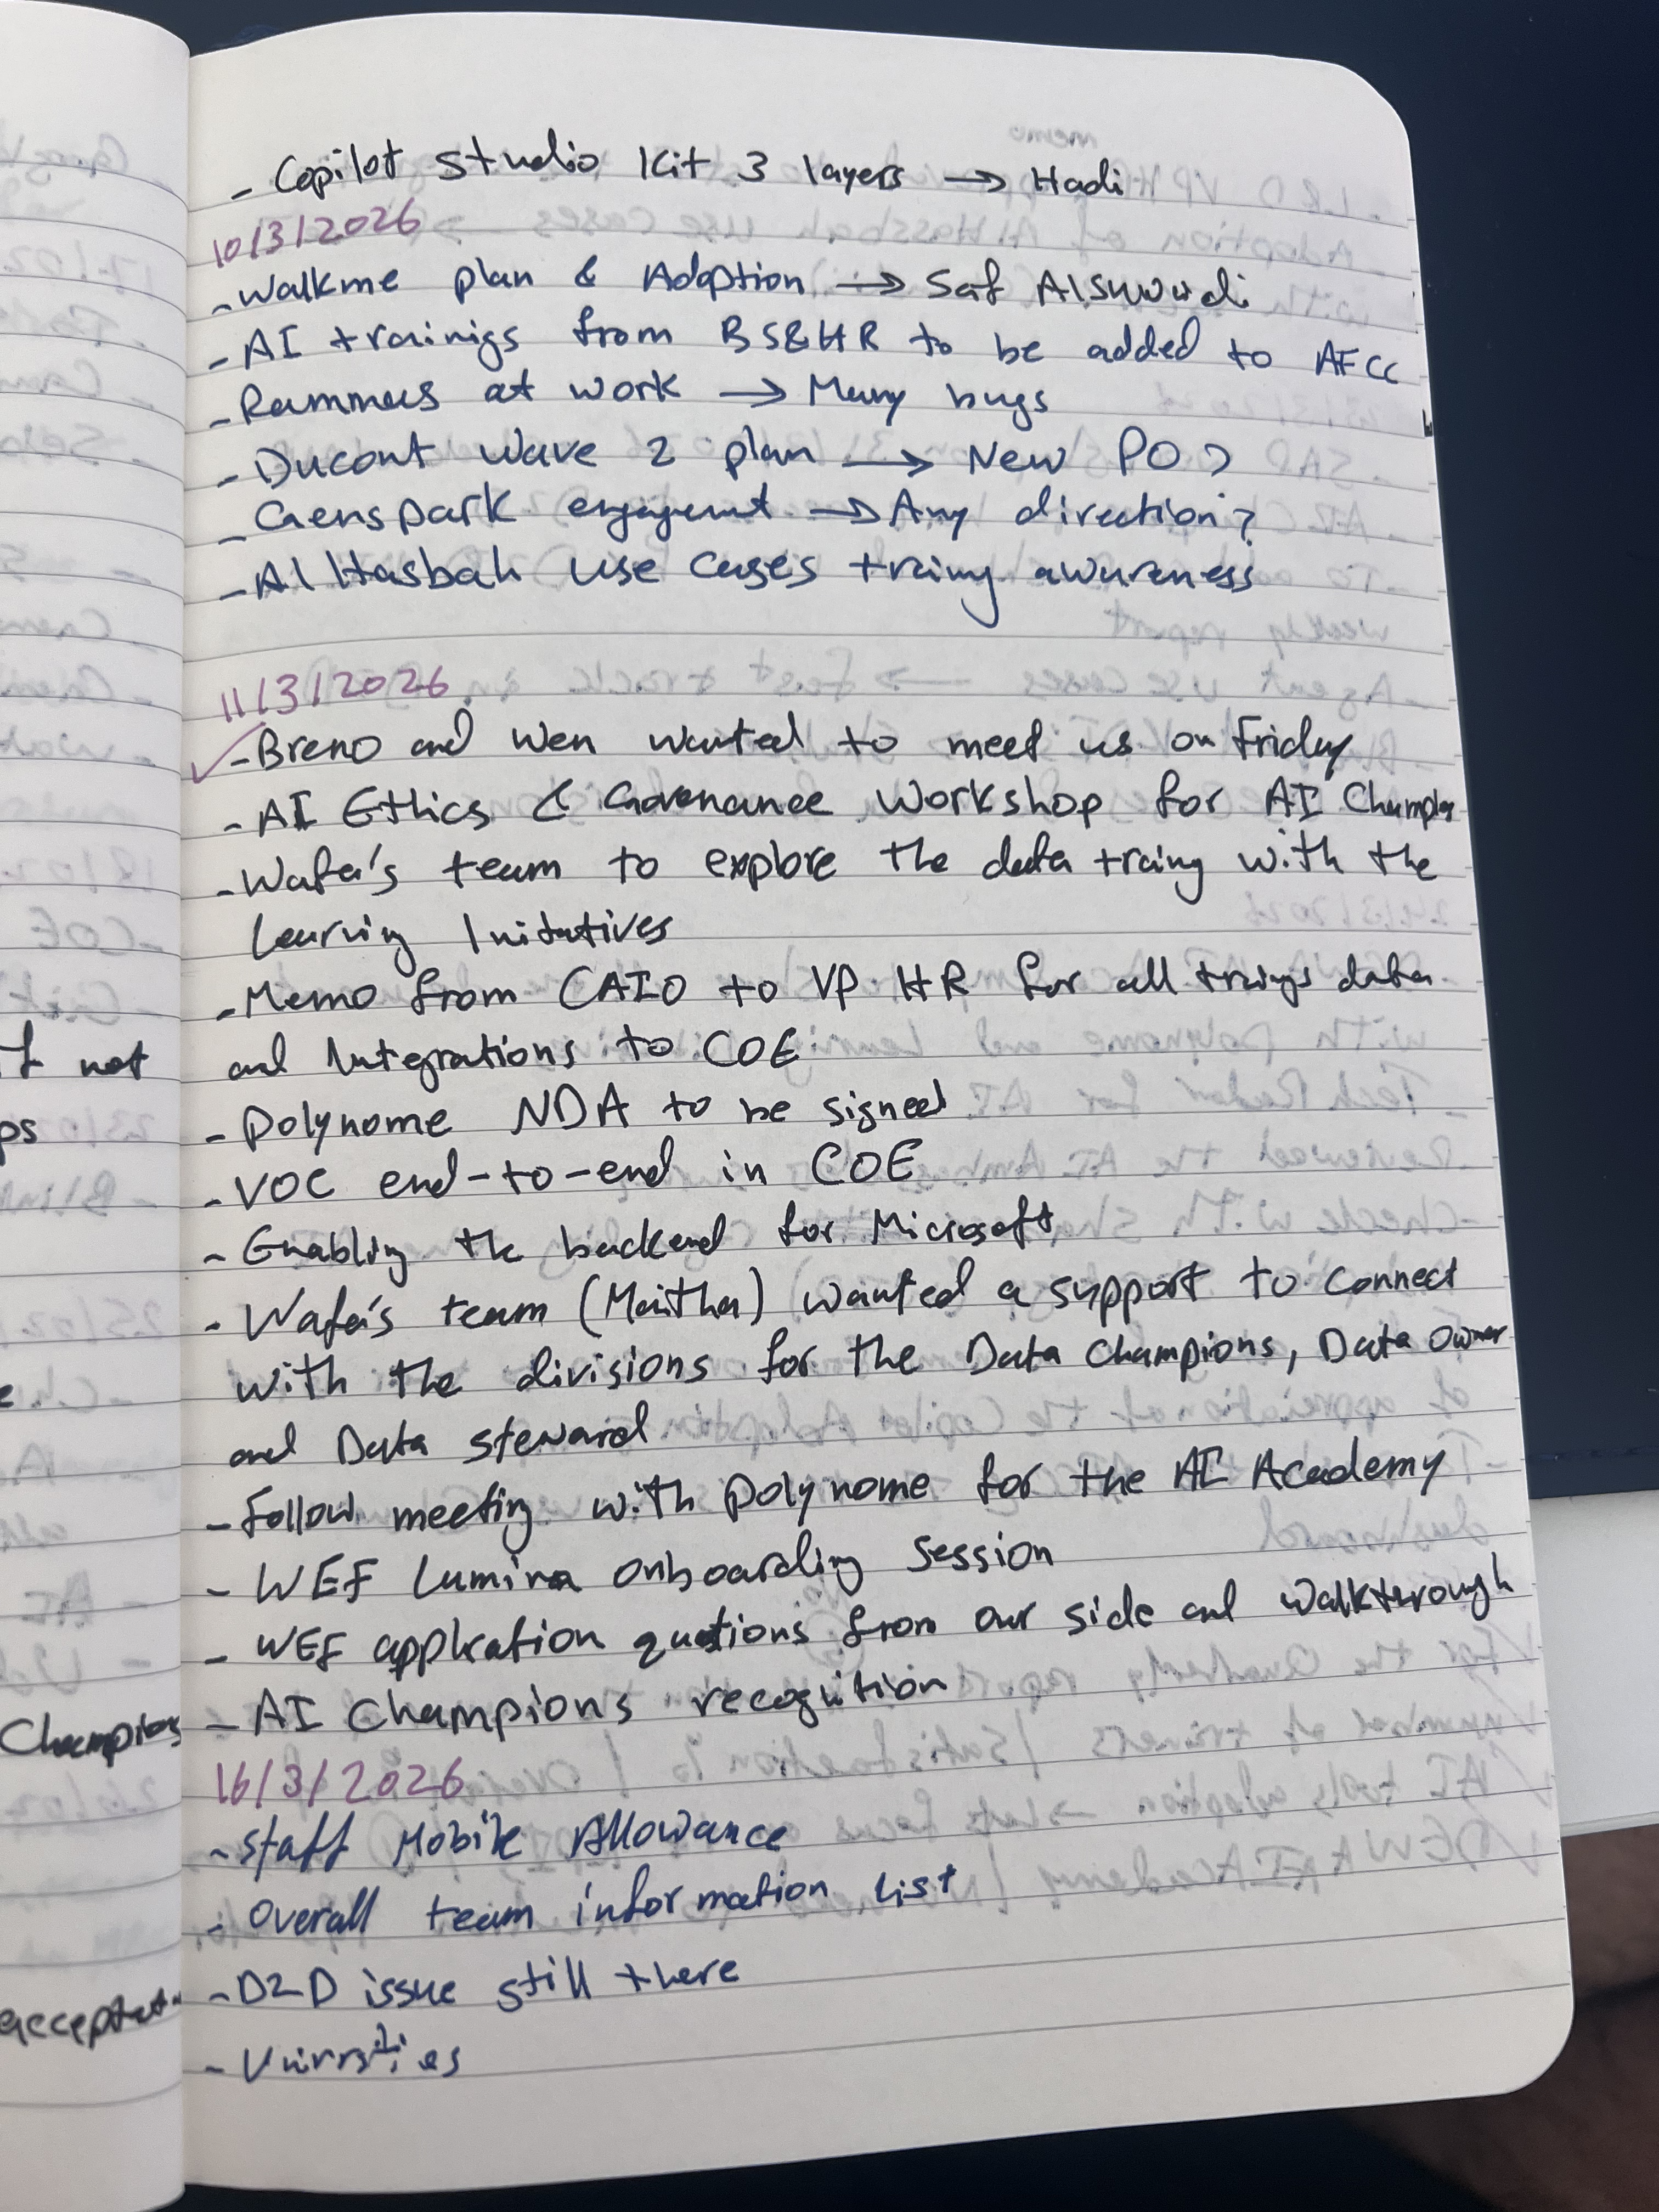 - Copilot Studio Kit 3 layers → Hadi
10/3/2026
- Walkme plan & Adoption → Saf AlSuwudi
- AI trainigs from BS&HR to be added to AFCC
- Rammas at work → Many bugs
- Ducont Wave 2 plan → New PO?
- Genspark engagement → Any direction?
- Al Hasbah use cases training awareness
11/3/2026
✓ - Breno and Wen wanted to meet us on Friday
- AI Ethics & Governance Workshop for AI Champions
- Wafa's team to explore the data training with the
Learning Initiatives
- Memo from CAIO to VP HR for all trainings data
and Integrations to COE
- Polynome NDA to be signed
- VOC end-to-end in COE
- Enabling the backend for Microsoft
- Wafa's team (Maitha) wanted a support to connect
with the divisions for the Data Champions, Data Owner
and Data steward
- Follow meeting with polynome for the AI Academy
- WEF Lumina onboarding session
- WEF application questions from our side and walkthrough
- AI Champions recognition
16/3/2026
- Staff Mobile Allowance
- Overall team information list
- D2D issue still there
t not
ps
Champions